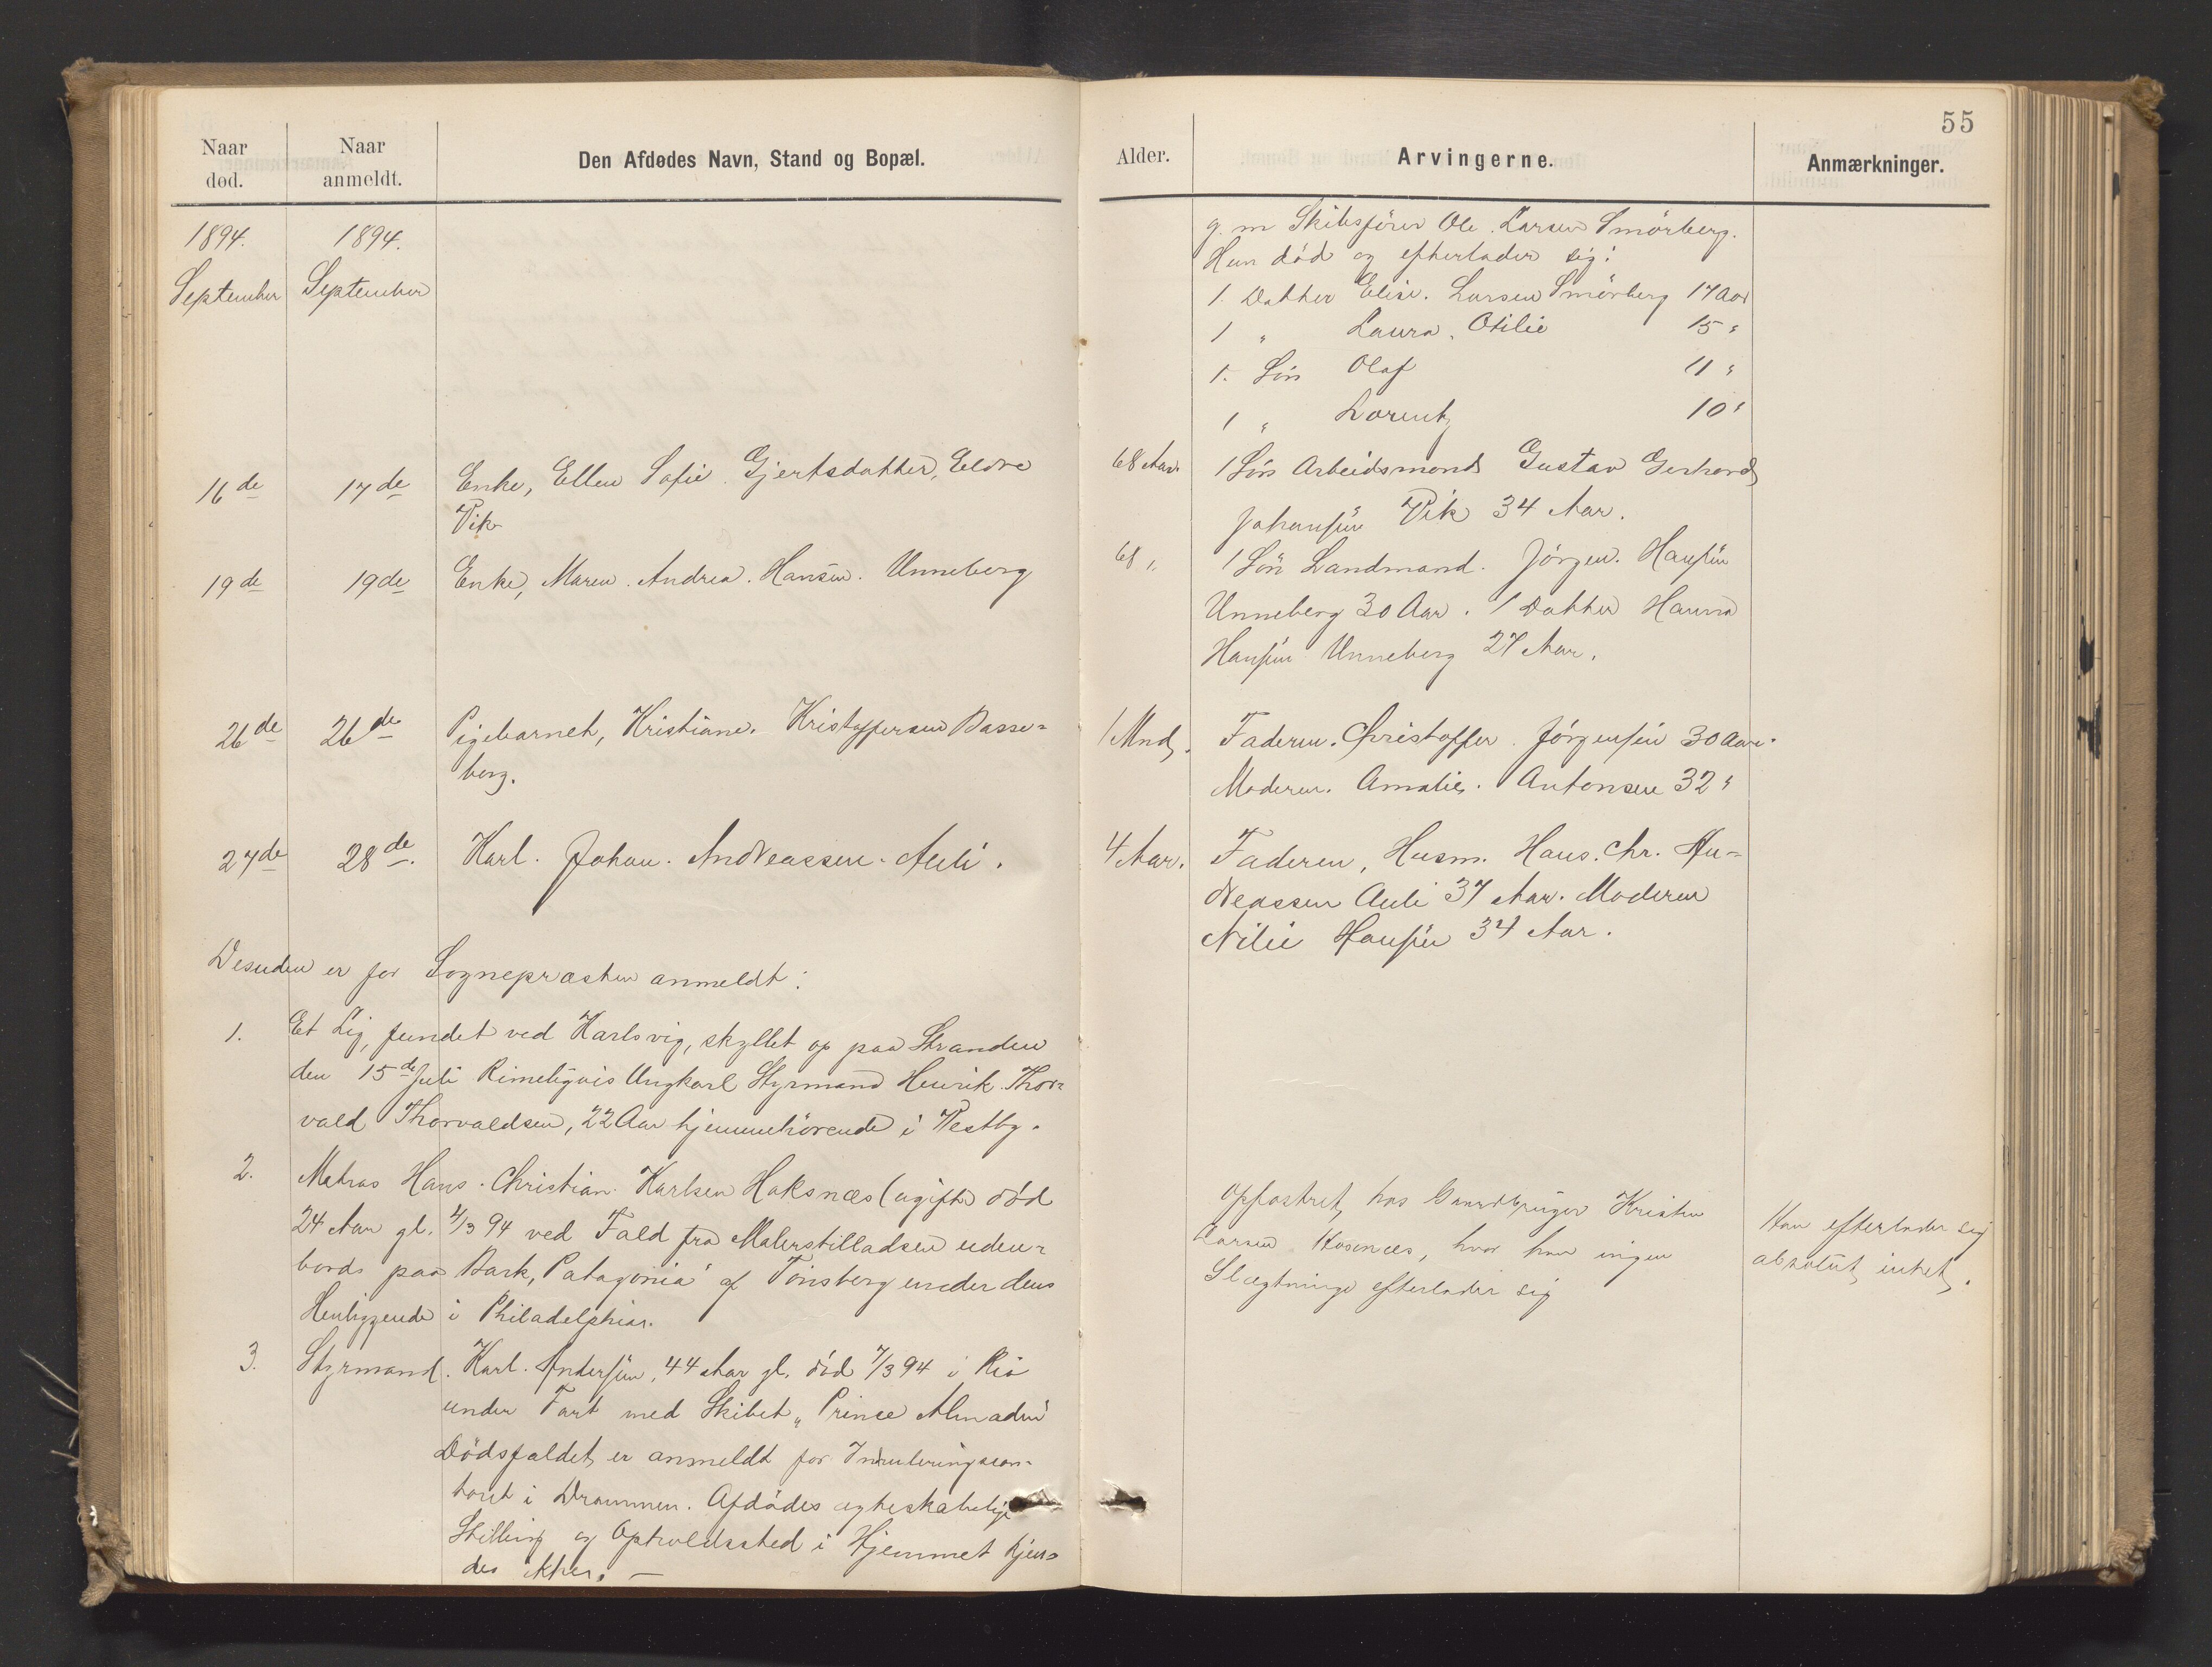 Naar
død.
Naar
anmeldt.
Den Afdødes Navn, Stand og Bopæl.
1894.
1894.
September
September
16de
17de
Enke, Ellen Sofie Gjertsdatter,
Vik
19de
19de
Enke, Maren. Andrea. Hansen. Unneberg
26de
26de
Pigebarnet, Kristiane. Kristoffersen Basse=
berg.
27de
28de.
Karl. Johan. Andreassen. Auli.
Desuden er for Sognepræsten anmeldt:
1.
Et Lig, fundet ved Karlsvig, skyllet op paa Stranden
den 15de Juli Rimeligvis Ungkarl Styrmand Henrik Thor=
vald Thorvaldsen, 22 Aar hjemmehörende i Vestby.
2.
Matros Hans. Christian. Karlsen Haksnæs (ugift) död
24 Aar gl. 4/3 94 ved Fald fra Malerstilladsen uden=
bords paa Bark, "Patagonia" af Tönsberg under dens
Henliggende i Philadelphia.
3.
Styrmand. Karl. Andersen, 44 Aar gl. död 7/3 94 i Rio
under Fart med Skibet "Prince
Dödsfaldet er anmeldt for
toret i Drammen. Afdödes ægteskabelige
Stilling og Opholdssted i Hjemmet kjen=
des ikke. —
55
Alder.
Arvingerne.
Anmærkninger.
g. m Skibsförer Ole. Larsen Smörberg.
Hun död og efterlader sig:
1. Datter Elise. Larsen Smörberg 17 Aar
1 " Laura. Otilie 15 "
1. Sön Olaf 11 "
1 " Lorentz 10 "
68 Aar
1 Sön Arbeidsmand Gustav Gerhard
Johansen Vik 34 Aar.
68 "
1 Sön Landmand. Jörgen. Hansen
Unneberg 30 Aar. 1 Datter Hanna
Hansen Unneberg 27 Aar.
1 Mnd.
Faderen. Christoffer. Jörgensen 30 Aar.
Moderen. Amalie. Antonsen 32 "
4 Aar.
Faderen, Husm. Hans. Chr. An=
dreassen Auli 37 Aar. Moderen
Nilie Hansen 34 Aar.
Opfostret hos Gaardbruger Kristen
Larsen, hvor han ingen
Slægtninge efterlader sig
Han efterlader sig
absolut intet.